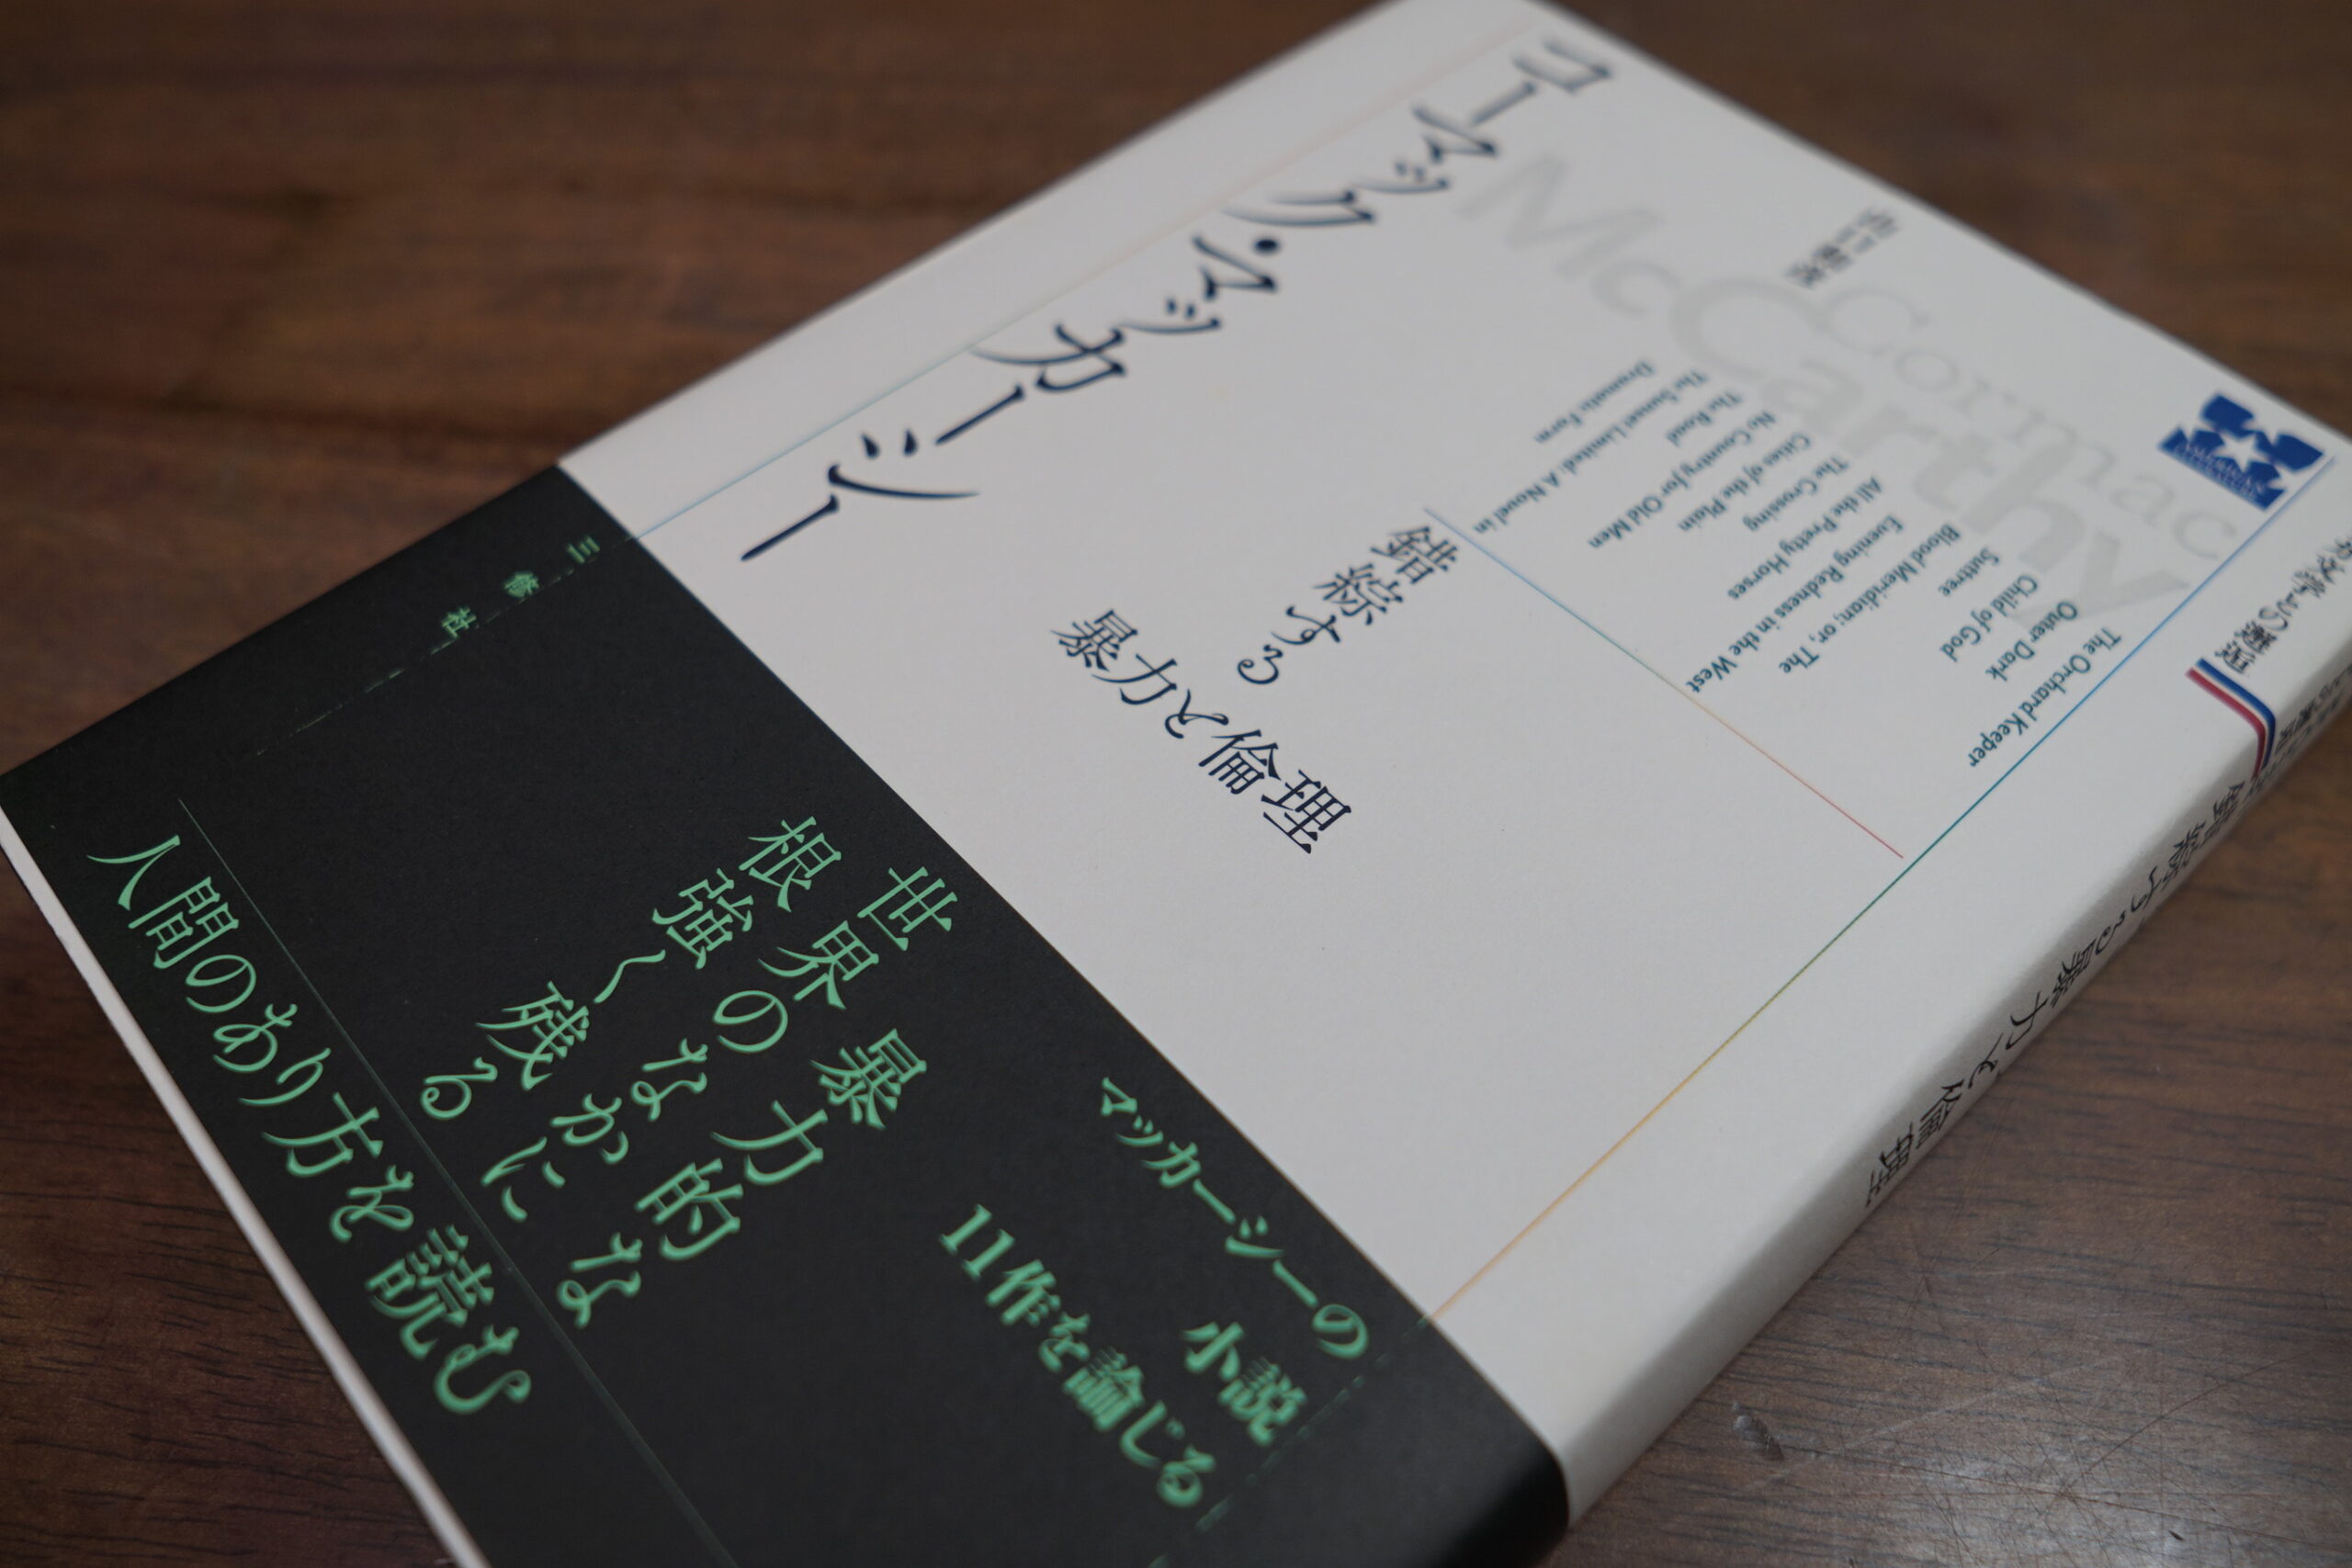 コーマック・マッカーシー
錯綜する
暴力と倫理
Cormac
McCarthy
The Orchard Keeper
Outer Dark
Child of God
Suttree
Blood Meridian; or, The
Evening Redness in the West
All the Pretty Horses
The Crossing
Cities of the Plain
No Country for Old Men
The Road
The Sunset Limited: A Novel in
Dramatic Form
マッカーシーの
小説
11作を論じる
世界の暴力的な
根強くなかに
残る
人間のあり方を読む
三修社
錯綜する暴力と倫理